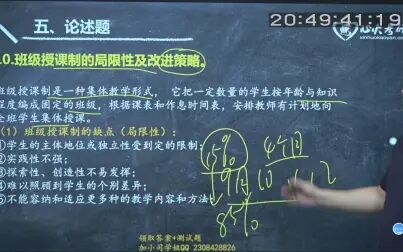 20:49:41:19
五、论述题
心火考研
xinhuokaoyan.com
0.班级授课制的局限性及改进策略。
班级授课制是一种集体教学形式， 它把一定数量的学生按年龄与知识
程度编成固定的班级，根据课表和作息时间表，安排教师有计划地向
全班学生集体授课。
（1） 班级授课制的缺点（局限性）：
①学生的主体地位或独立性受到一定的限制；
②实践性不强；
③探索性、创造性不易发挥；
④难以照顾到学生的个别差异；
⑤不能容纳和适应更多种的教学内容和方法
15%
85%
领取答案+测试题
加小司学姐 QQ 2308428826